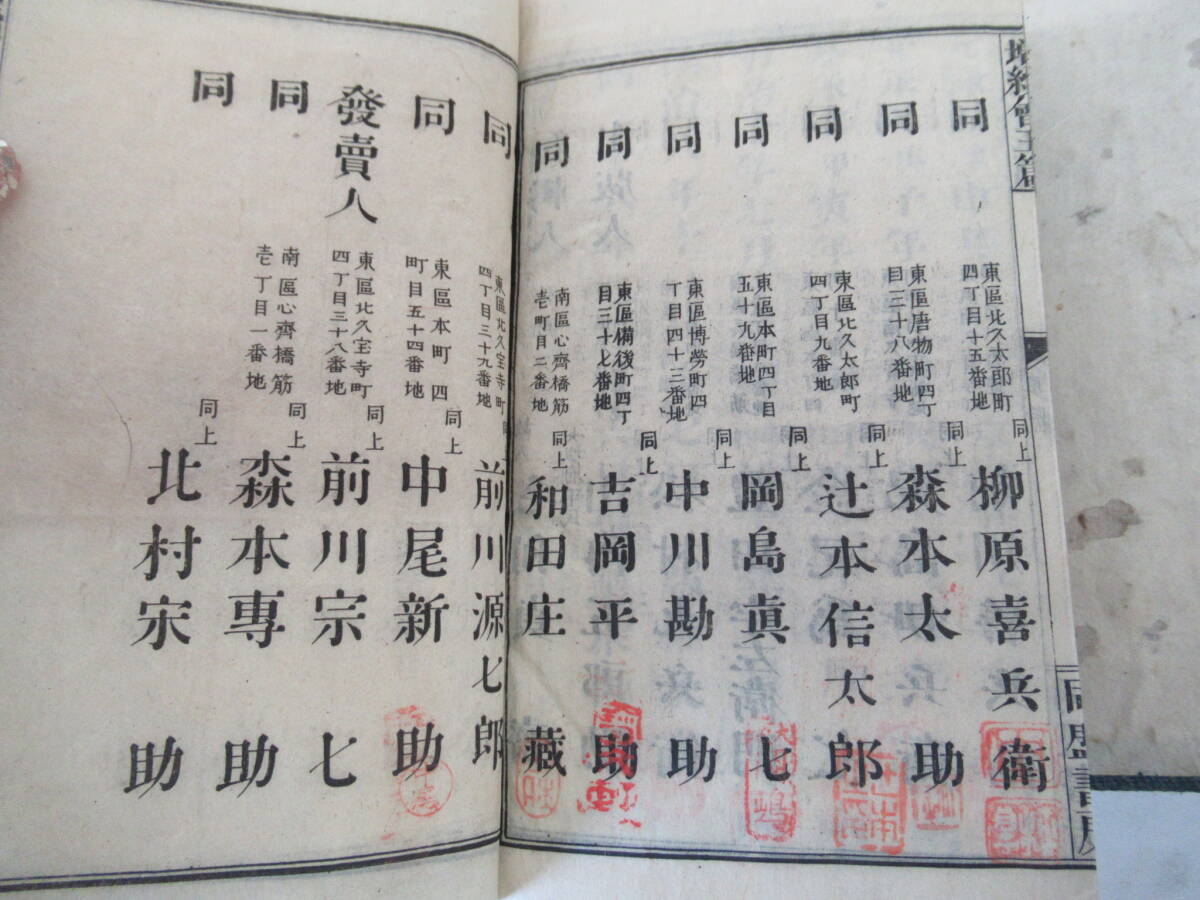 同 東區北久太郎町四丁目十五番地 同上 柳原喜兵衛
同 東區唐物町四丁目二十八番地 同上 森本太助
同 東區北久太郎町四丁目九番地 同上 辻本信太郎
同 東區本町四丁目五十九番地 同上 岡島眞七
同 東區博勞町四丁目四十三番地 同上 中川勘助
同 東區備後町四丁目三十七番地 同上 吉岡平助
同 南區心齊橋筋壱町目二番地 同上 和田庄藏
同 東區北久宝寺町四丁目三十九番地 前川源七郎
同 東區本町四町目五十四番地 同上 中尾新助
發賣人 東區北久宝寺町四丁目三十八番地 同上 前川宗七
同 南區心齊橋筋壱丁目一番地 同上 森本專助
同 同上 北村宋助